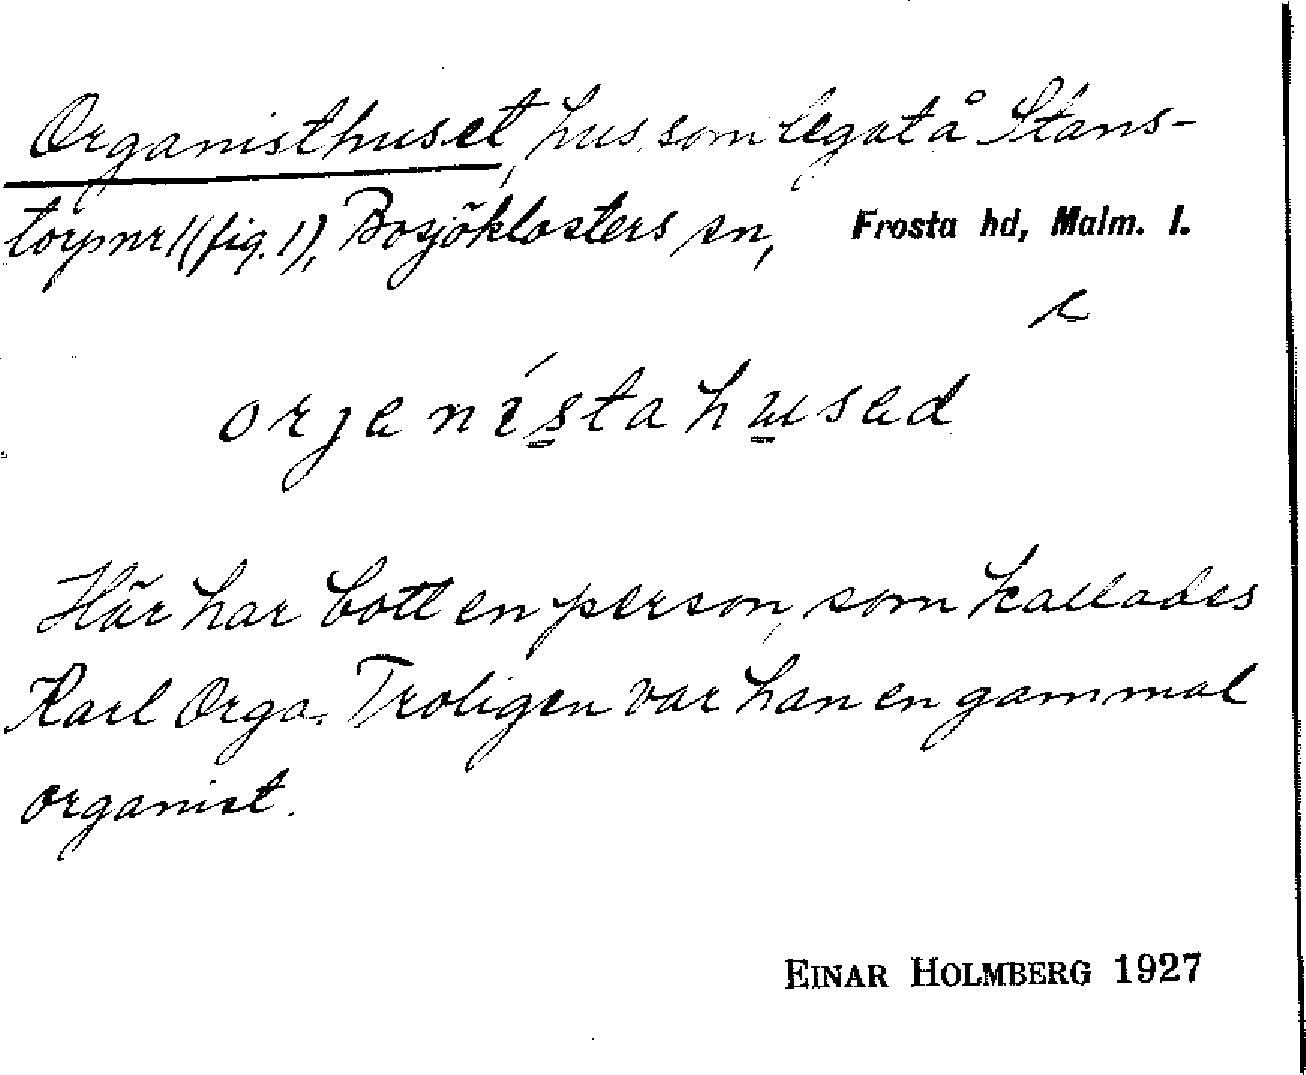 Organisthuset, hus, som legat å Stans-
torp nr 1 (fig. 1), Bosjöklosters sn, Frosta hd, Malm. l.
orjenístahused
Här har bott en person, som kallades
Karl Orga. Troligen var han en gammal
organist.
EINAR HOLMBERG 1927